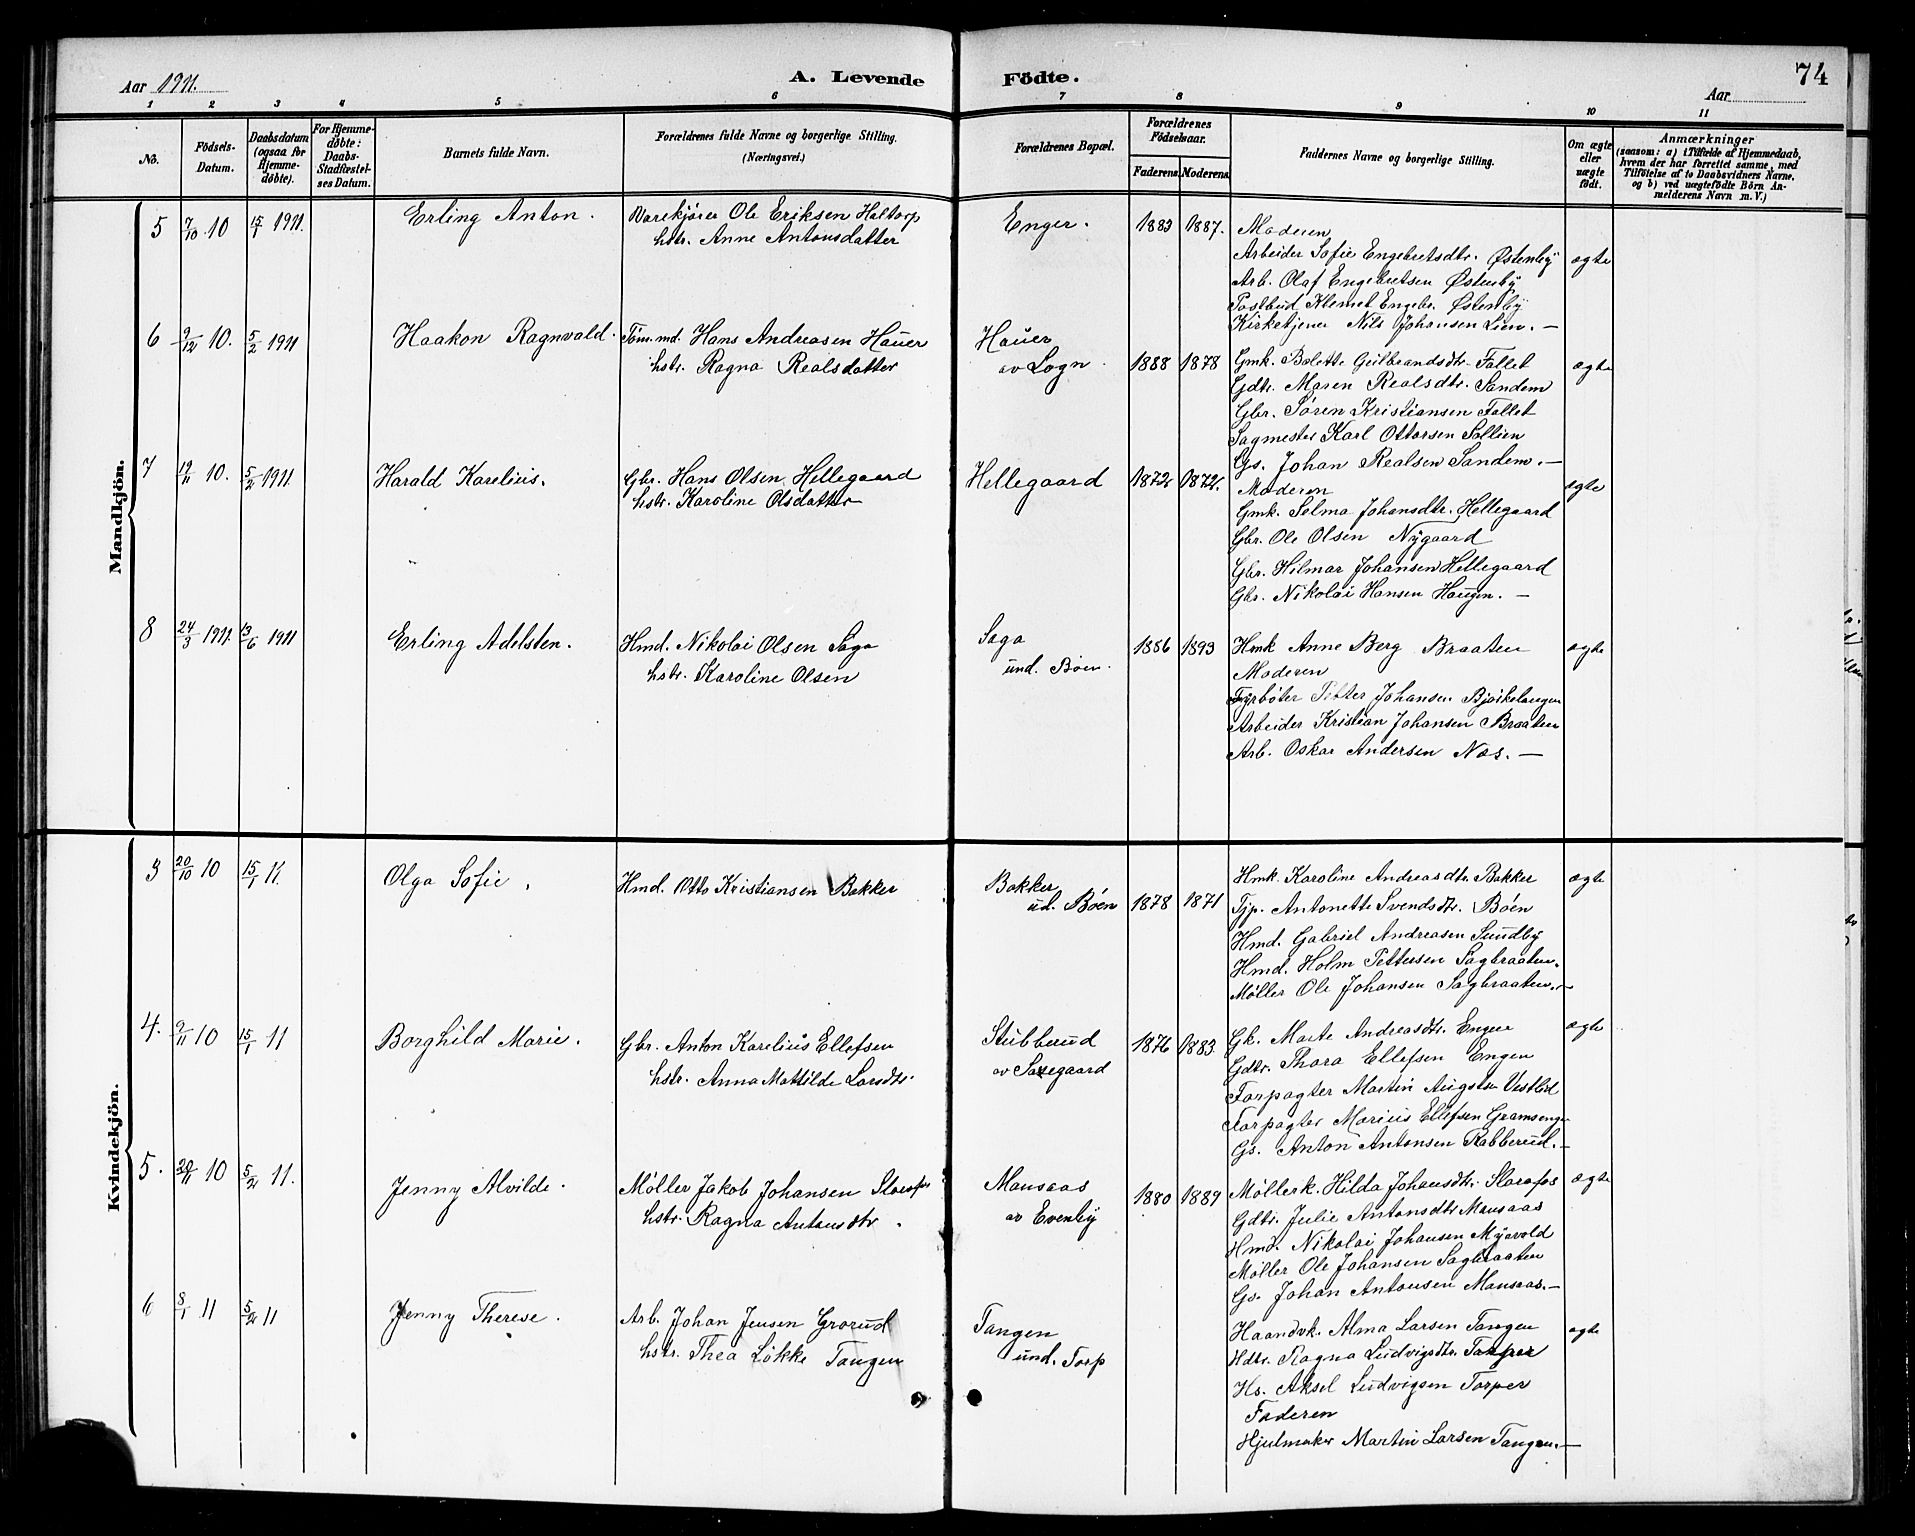 Aar 1911.
A. Levende Födte.
74
Aar
1 2 3 4 5 6 7 8 9 10 11
No.
Födsels-Datum.
Daabsdatum (ogsaa for Hjemme-døbte).
For Hjemme-døbte: Daabs-Stadfæstel-ses Datum.
Barnets fulde Navn.
Forældrenes fulde Navne og borgerlige Stilling. (Næringsvei.)
Forældrenes Bopæl.
Forældrenes Födselsaar.
Faderens. Moderens.
Faddernes Navne og borgerlige Stilling.
Om ægte eller uægte födt.
Anmærkninger
(saasom: a) i Tilfælde af Hjemmedaab,
hvem der har forrettet samme, med
Tilföielse af to Daabsvidners Navne,
og b) ved uægtefödte Börn An-
melderens Navn m. V.)
Mandkjön.
5 7/10 10 15/1 1911. Erling Anton. Varekjører Ole Eriksen Haltorp
hstr. Anne Antonsdatter
Enger. 1883 1887. ægte
Moderen
Arbeider Sofie Engebretsdtr. Østenby
Arb. Olaf Engebretsen Østenby
Postbud Klemet Engebr. Østenby
Kirketjener Nils Johansen Lien. —
6 9/12 10. 5/2 1911 Haakon Ragnvald. Töm.md. Hans Andreasen Hauer
hstr. Ragna Realsdatter
Hauer
av Sogn. 1888 1878 ægte
Gmk. Bolette Gulbrandsdtr. Fallet
Gdtr. Maren Realsdtr. Sandem
Gbr. Søren Kristiansen Fallet
Sagmester Karl Ottersen Sollien
Gs. Johan Realsen Sandem. —
7 19/11 10. 5/2 1911 Harald Karelius. Gbr. Hans Olsen Hellegaard
hstr. Karoline Olsdatter
Hellegaard 1872 1872. ægte
Moderen
Gmk. Selma Johansdtr. Hellegaard
Gbr. Ole Olsen Nygaard
Gbr. Hilmar Johansen Hellegaard
Gbr. Nikolai Hansen Haugen. —
8 24/3 1911. 13/6 1911 Erling Adelsten. Hmd. Nikolai Olsen Saga
hstr. Karoline Olsen
Saga
und. Boen. 1886 1893 ægte
Hmk Anne Berg Braaten
Moderen
Fyrbøter Petter Johansen Bjørkelangen
Arbeider Kristian Johansen Braaten
Arb. Oskar Andersen Næs. —
Kvindekjön.
3 20/10 10 15/1 11. Olga Sofie. Hmd. Otto Kristiansen Bakker
Bakker
ud. Böen 1878 1871 ægte
Hmk. Karoline Andreasdtr. Bakker
Tjp. Antonette Svendsdtr. Böen
Hmd. Gabriel Andreasen Sundby
Hmd. Holm Pettersen Sagbraaten.
Møller Ole Johansen Sagbraaten. —
4. 9/11 10 15/1 11 Borghild Marie. Gbr. Anton Karelius Ellefsen
hstr. Anna Mathilde Larsdtr.
Stubberud
av 1876 1883. ægte
Gk. Marte Andreasdtr. Engen
Gdtr. Thora Ellefsen Engen
Forpagter Martin Augstsen Vestlid
Forpagter Marius Ellefsen Gramsengen
Gs. Anton Antonsen Rabberud. —
5. 10 5/2 11. Jenny Alvilde. Møller Jakob Johansen
hstr. Ragna Antonsdtr.
Mansaas
av Evenby 1880 1889 ægte
Møllerk. Hilda Johansdtr.
Gdtr. Julie Antonsdtr Mansaas
Hmd. Nikolai Johansen Myrvold
Møller Ole Johansen Sagbraaten
Gs. Johan Antonsen Mansaas. —
6 8/1 11 5/2 11 Jenny Therese. Arb. Johan Jensen Grorud
hstr. Thea Løkke Tangen
Tangen
und. Torp ægte
Haandvk. Alma Larsen Tangen
Hdtr. Ragna Ludvigsdtr. Torper
Hs. Aksel Ludvigsen Torper
Faderen
Hjulmaker Martin Larsen Tangen. —